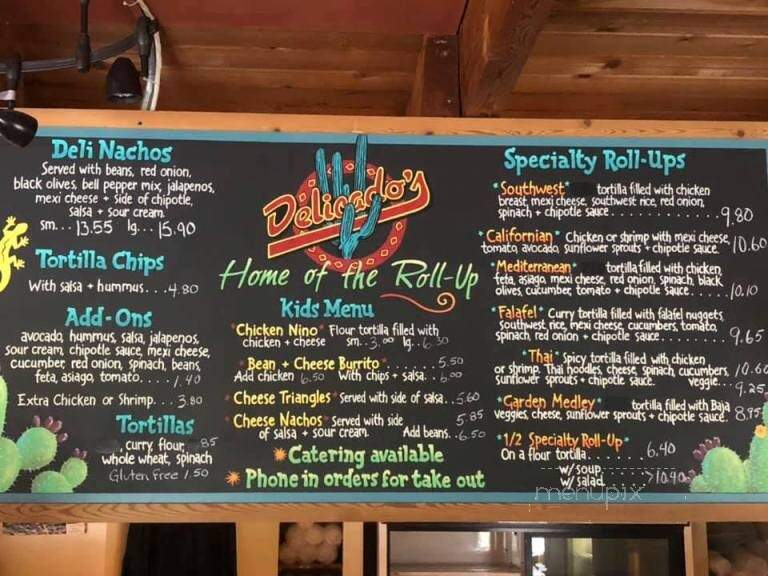 Deli Nachos
Served with beans, red onion,
black olives, bell pepper mix, jalapenos,
mexi cheese + side of chipotle,
salsa + sour cream.
sm... 13.55 lg... 15.90
Tortilla Chips
With salsa + hummus... 4.80
Add-Ons
avocado, hummus, salsa, jalapenos,
sour cream, chipotle sauce, mexi cheese,
cucumber, red onion, spinach, beans,
feta, asiago, tomato..... 1.40
Extra Chicken or Shrimp... 3.80
Tortillas
curry, flour, .85
whole wheat, spinach
Gluten Free 1.50
Delicado's
Home of the Roll-Up
Kids Menu
*Chicken Nino* Flour tortilla filled with
chicken + cheese sm.. lg... 6.30
*Bean + Cheese Burrito*........ 5.50
Add chicken 6.50 With chips + salsa...
*Cheese Triangles* Served with side of salsa... 5.60
*Cheese Nachos* Served with side 5.85
of salsa + sour cream. Add beans.. 6.50
*Catering available
*Phone in orders for take out
Specialty Roll-Ups
*Southwest* tortilla filled with chicken
breast, mexi cheese, southwest rice, red onion,
spinach + chipotle sauce............... 9.80
*Californian* Chicken or shrimp with mexi cheese,
tomato, avocado, sunflower sprouts + chipotle sauce. 10.60
*Mediterranean* tortilla filled with chicken,
feta, asiago, mexi cheese, red onion, spinach, black
olives, cucumber, tomato + chipotle sauce..... 10.10
*Falafel* Curry tortilla filled with falafel nuggets,
southwest rice, mexi cheese, cucumbers, tomato,
spinach, red onion + chipotle sauce.......... 9.65
*Thai* Spicy tortilla filled with chicken
or shrimp. Thai noodles, cheese, spinach, cucumbers, 10.60
sunflower sprouts + chipotle sauce. veggie... 9.25
*Garden Medley* tortilla filled with Baja
veggies, cheese, sunflower sprouts + chipotle sauce. 8.95
*1/2 Specialty Roll-Up*
On a flour tortilla........ 6.40
w/soup
w/salad >10.90
menupix